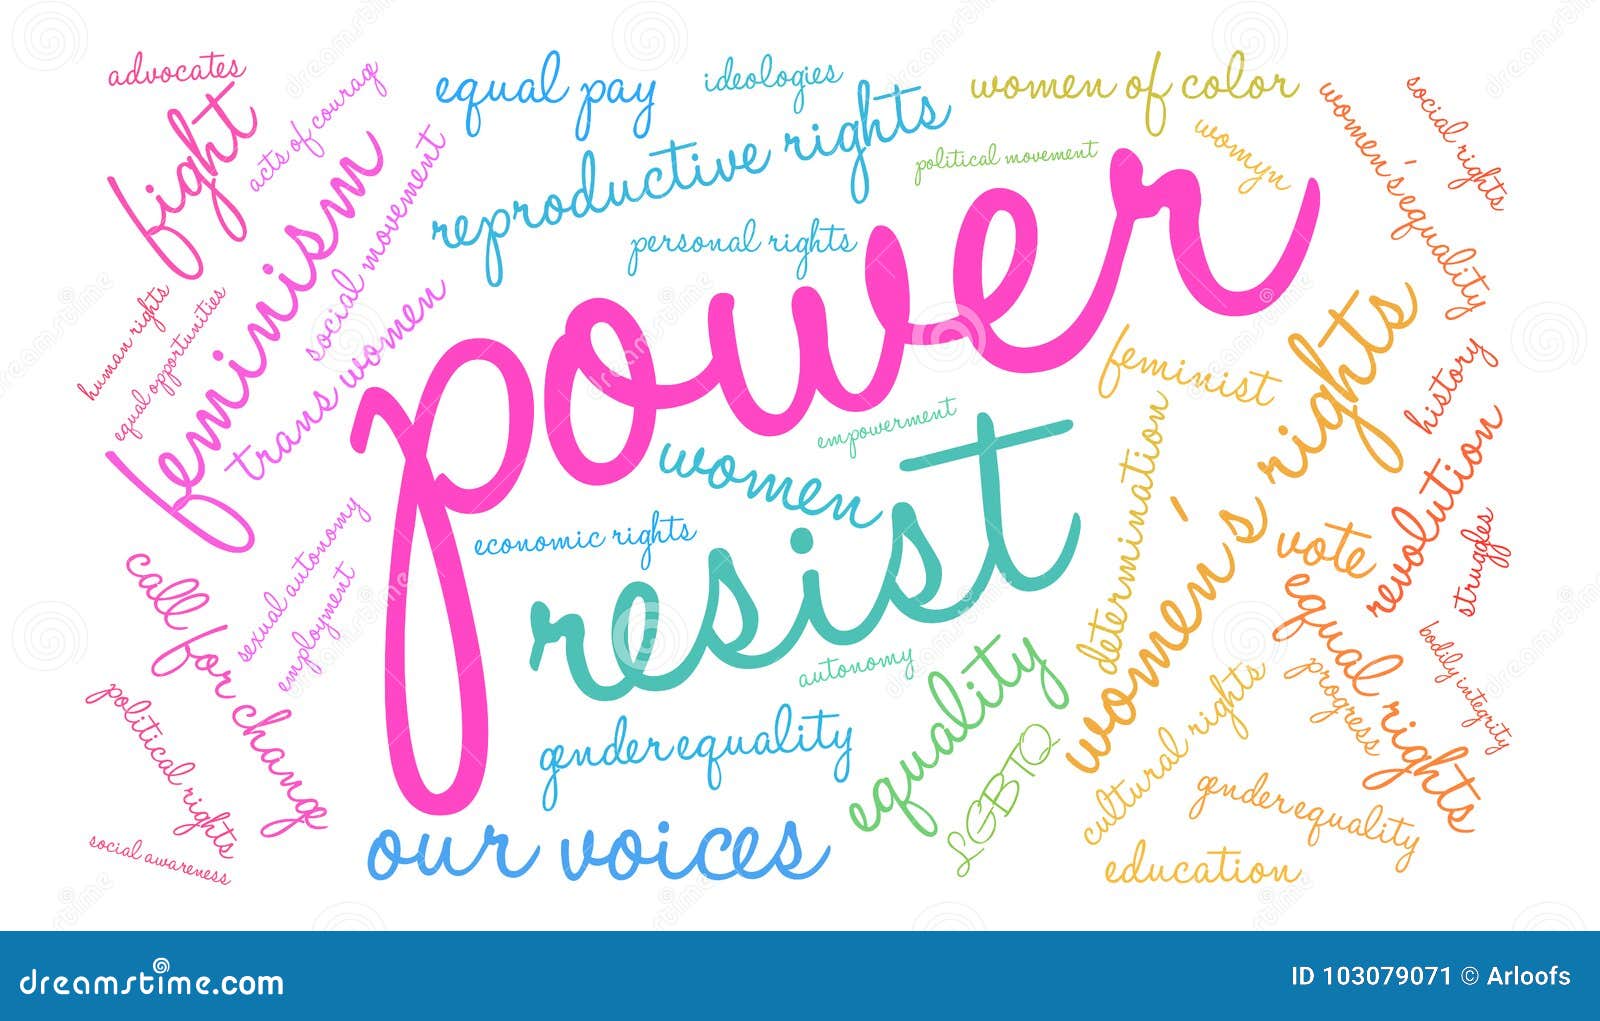 advocates
fight
acts of courag
feminism
social movement
trans women
human rights
equal opportunities
equal pay
ideologies
reproductive rights
personal rights
women of color
political movement
womyn
women's equality
social rights
power
empowerment
women
economic rights
resist
autonomy
feminist
determination
women's rights
history
revolution
vote
struggles
equal rights
progress
bodily integrity
sexual autonomy
employment
call for change
political rights
social awareness
gender equality
our voices
equality
LGBTQ
cultural rights
gender equality
education
dreamstime.com
ID 103079071 © Arloofs